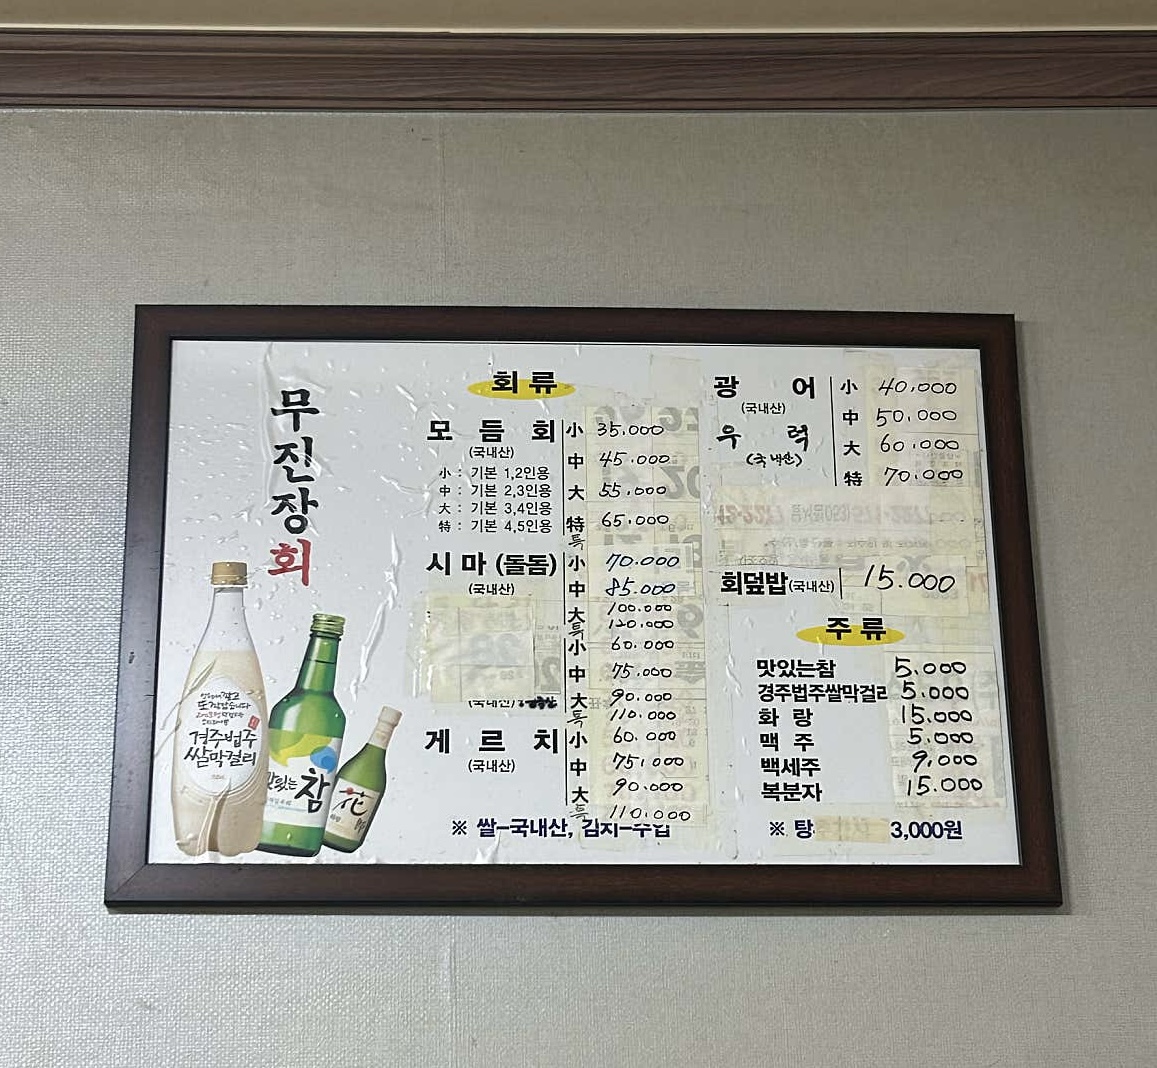 무진장회
회류
모듬회 小 35.000
(국내산) 中 45.000
小 : 기본 1,2인용
中 : 기본 2,3인용 大 55.000
大 : 기본 3,4인용
特 : 기본 4,5인용 特 65.000
특
시마(돌돔) 小 70.000
(국내산) 中 85.000
大 100.000
특 120.000
小 60.000
中 75.000
(국내산) 大 90.000
특 110.000
게르치 小 60.000
(국내산) 中 75.000
大 90.000
특 110.000
※ 쌀-국내산, 김치-수입
광어 小 40.000
(국내산) 中 50.000
우럭 大 60.000
(국내산) 特 70.000
회덮밥(국내산) 15.000
주류
맛있는참 5.000
경주법주쌀막걸리 5.000
화랑 15.000
맥주 5.000
백세주 9.000
복분자 15.000
※ 탕 3,000원
경주법주
쌀막걸리
맛있는 참
花